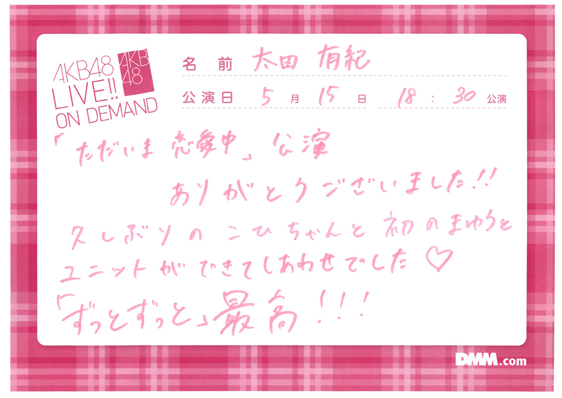 AKB48
LIVE!!
ON DEMAND
AKB
48
名前 太田 有紀
公演日 5月15日 18:30公演
「ただいま 恋愛中」公演
ありがとうございました!!
久しぶりのこひちゃんと初のまゆうと
ユニットができてしあわせでした♡
「ずっとずっと」最高!!!
DMM.com